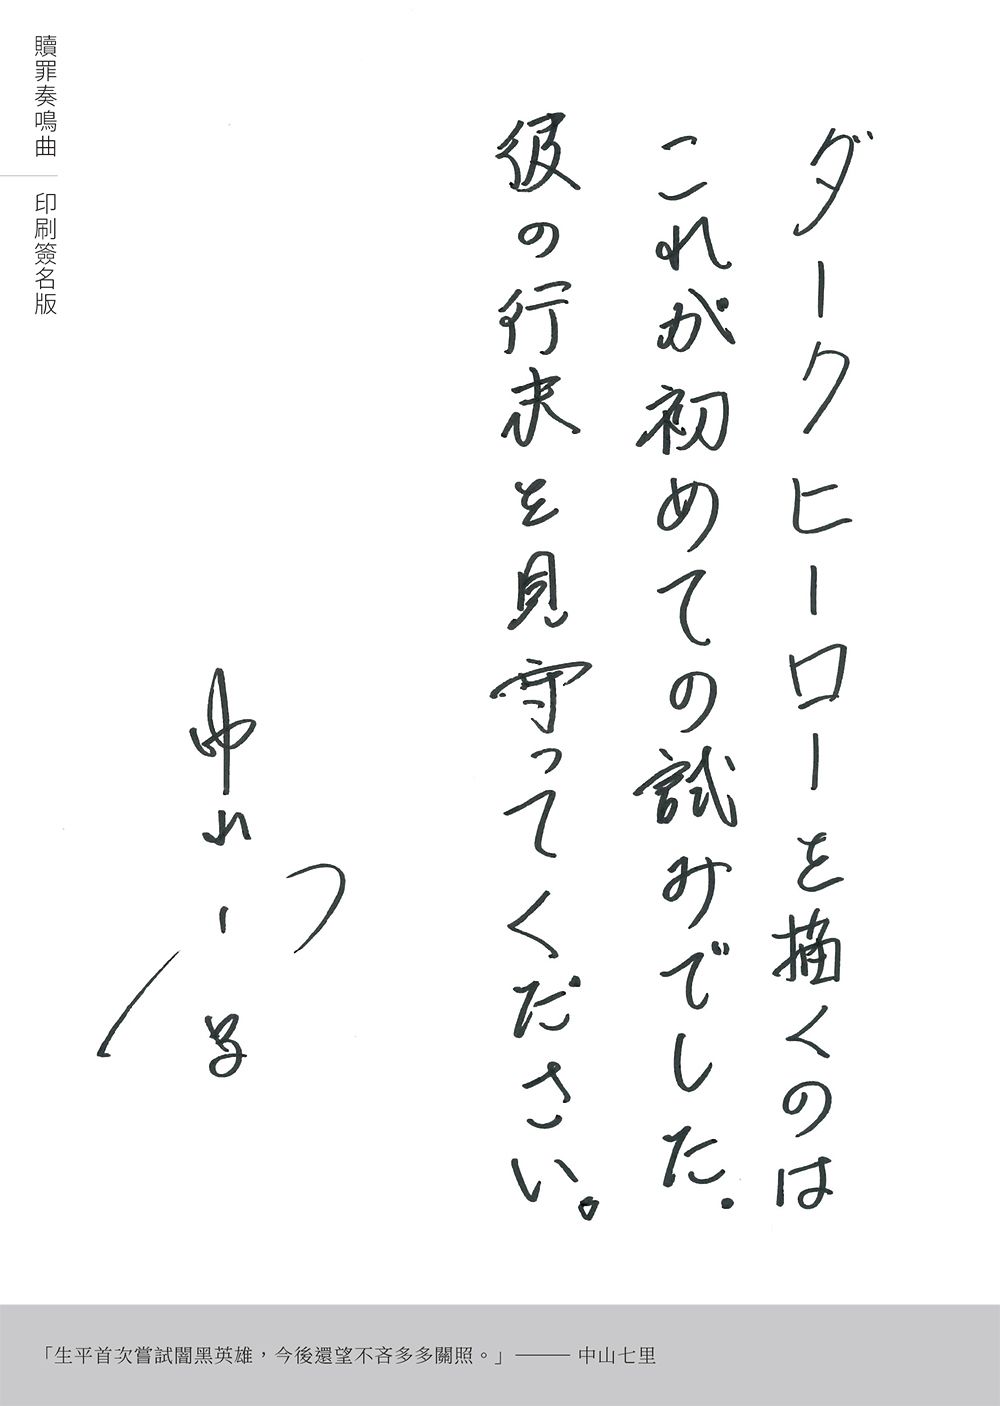 贖罪奏鳴曲
印刷簽名版
ダークヒーローを描くのは
これが初めての試みでした。
彼の行末を見守ってください。
「生平首次嘗試闇黑英雄,今後還望不吝多多關照。」——中山七里